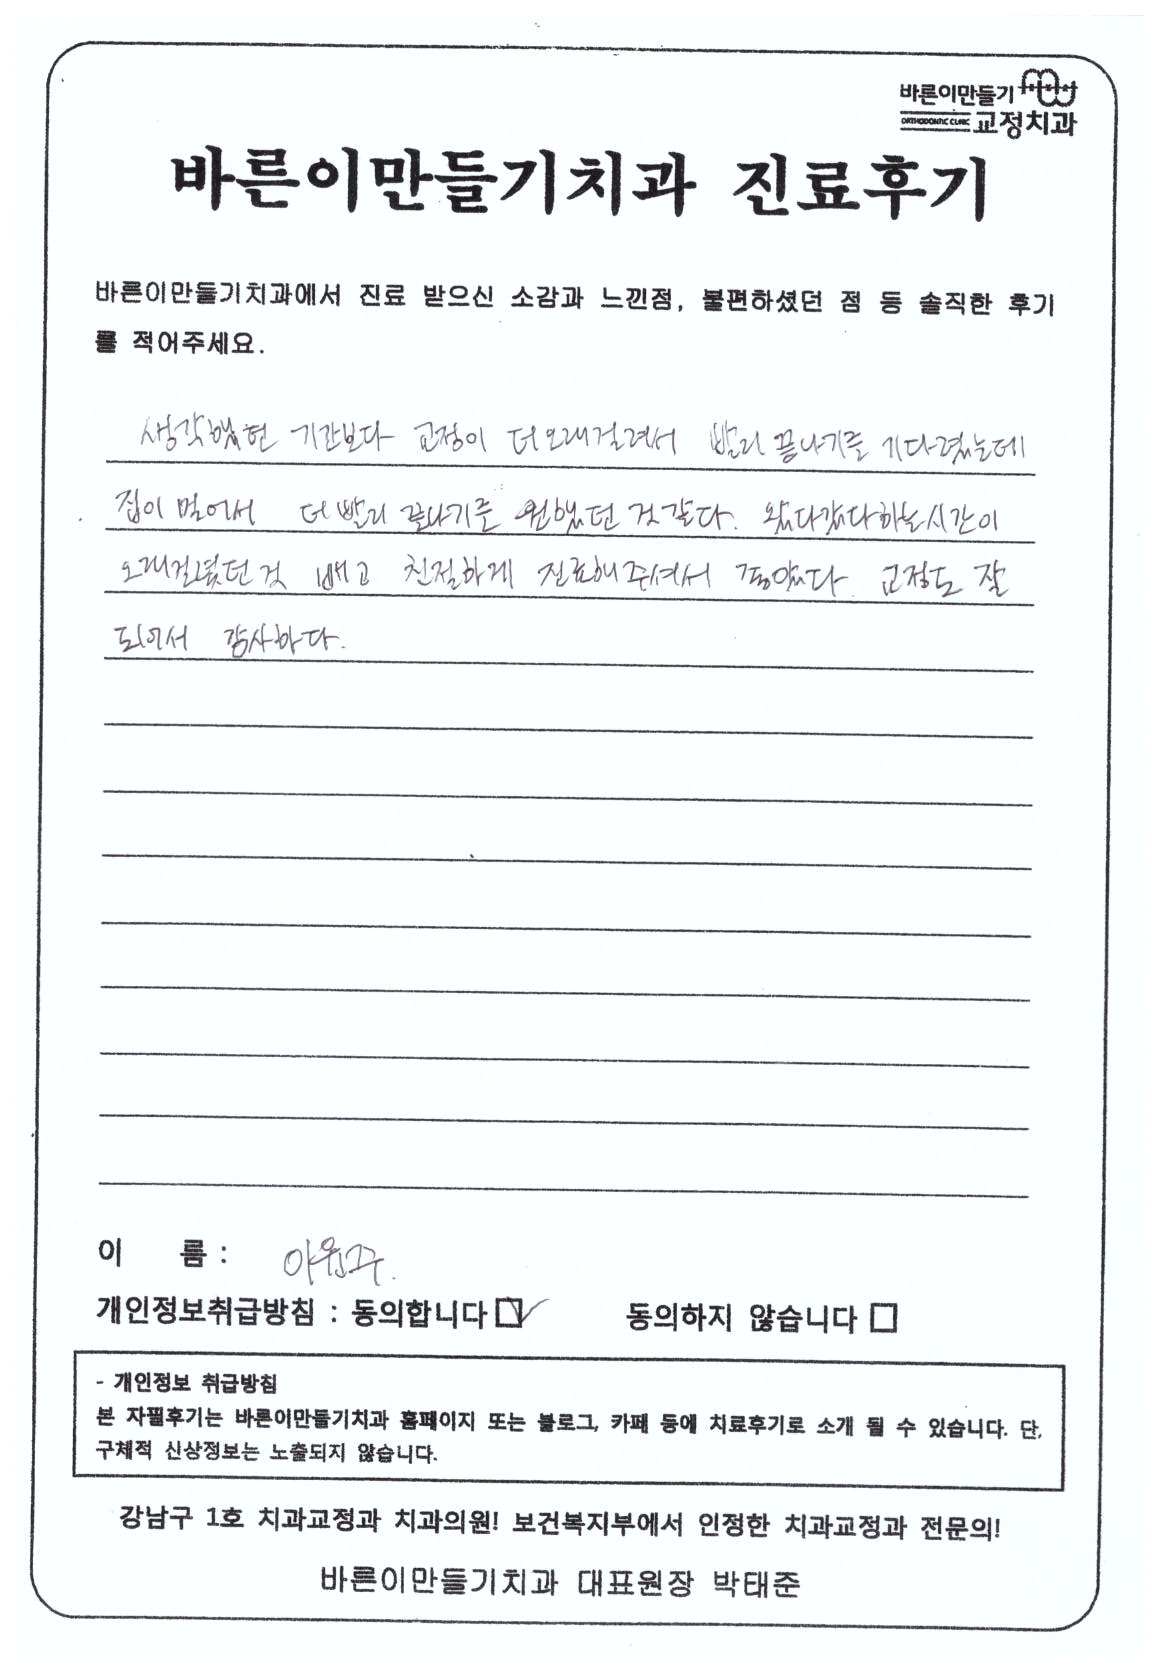 바른이만들기
ORTHODONTIC CLINIC 교정치과
바른이만들기치과 진료후기
바른이만들기치과에서 진료 받으신 소감과 느낀점, 불편하셨던 점 등 솔직한 후기
를 적어주세요.
생각했던 기간보다 교정이 더 오래걸려서 빨리 끝나기를 기다렸는데
집이 멀어서 더 빨리 끝나기를 원했던 것 같다. 왔다갔다하는 시간이
오래걸렸던 것 빼고 친절하게 진료해주셔서 좋았다. 교정도 잘
되어서 감사하다.
이 름 :
개인정보취급방침 : 동의합니다 동의하지 않습니다
- 개인정보 취급방침
본 자필후기는 바른이만들기치과 홈페이지 또는 블로그, 카페 등에 치료후기로 소개 될 수 있습니다. 단,
구체적 신상정보는 노출되지 않습니다.
강남구 1호 치과교정과 치과의원! 보건복지부에서 인정한 치과교정과 전문의!
바른이만들기치과 대표원장 박태준